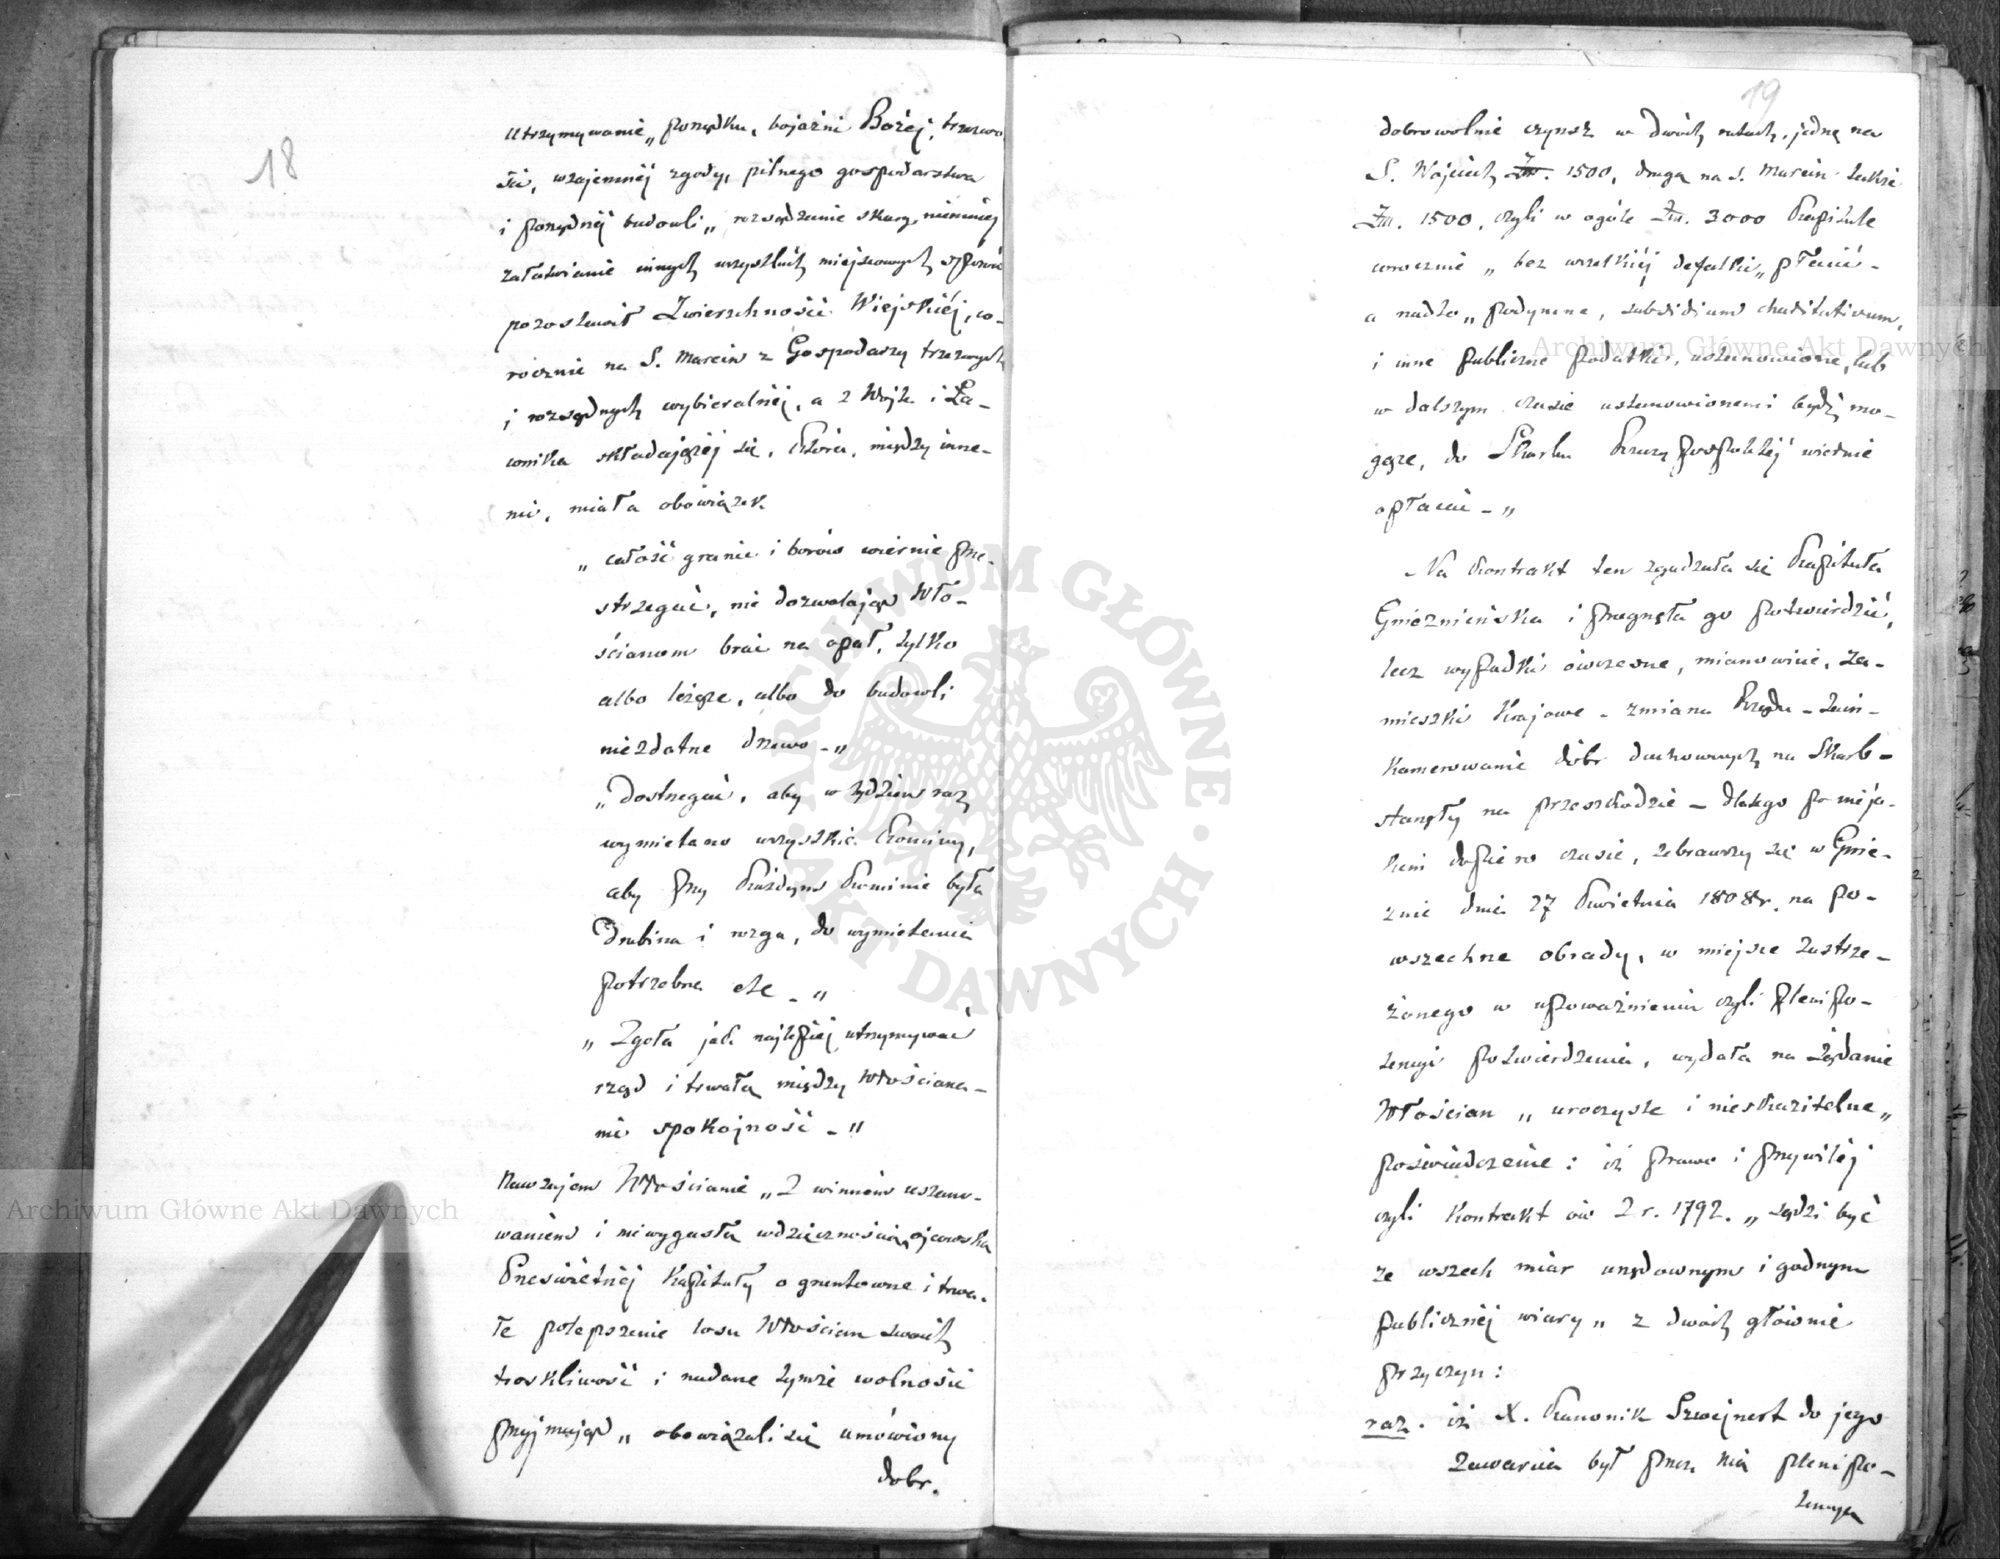 18
utrzymywanie „porządku, bojaźni Bożej, trzeźwo
ści, wzajemnéj zgody, pilnego gospodarstwa
i porządnéj budowli„ rozsądzanie skarg, niemniej
załatwianie innych wszystkich miejscowych spraw
pozostawił Zwierzchności Wiejskiéj, co-
rocznie na S. Marcin z Gospodarzy trzeźwych
i rozsądnych wybieralnéj, a z Wójta i Ła-
wnika składającéj się, która, między inne-
mi, miała obowiązek.
„ całość granic i borów wiernie prze-
strzegać, nie dozwalając Wło-
ścianom brać na opał, tylko
albo leżące, albo do budowli
niezdatne drzewo-„
„Dostrzegać, aby w tydzień raz
wymietano wszystkie kominy,
aby przy każdym kominie była
drabina i rozga, do wymietania
potrzebna etc -„
„ Zgoła jak najlepiéj utrzymywać
rząd i trwałą między Włościana-
mi spokojność -„
Nawzajem Włościanie „Z winnem uszano-
waniem i niewygasłą wdzięcznością, ojcowską
Prześwietnéj Kapituły o gruntowne i trwa-
łe polepszenie losu Włościan swoich
troskliwość i nadane tymże wolności
przyjmując„ obowiązali się umówiony
dobr.
19
dobrowolnie czynsz w dwóch ratach, jedną na
S. Wojciech Zł. 1500, drugą na S. Marcin także
Zł. 1500, czyli w ogóle Zł. 3000 Kapitule
corocznie „ bez wszelkiéj defalki„ płacić-
a nadto „ podymne, subsidium charitativum,
i inne publiczne podatki, ustanowione, lub
w dalszym czasie ustanowionemi bydź mo-
gące, do Skarbu Rzeczypospolitéj wiernie
opłacić -„
- Na kontrakt ten zgadzała się Kapituła
Gnieznieńska i pragnęła go potwierdzić,
lecz wypadki ówczesne, mianowicie, za-
mieszki Krajowe - zmiana Rządu - Zain-
kamerowanie dóbr duchownych na Skarb-
stanęły na przeszkodzie - dlatego po nieja-
kim dopiero czasie, zebrawszy się w Gnie-
źnie dnia 27 Kwietnia 1808 r. na po-
wszechne obrady, w miejsce zastrze-
żonego w upoważnieniu czyli plenipo-
tencyi potwierdzenia, wydała na żądanie
Włościan „ uroczyste i nieskazitelne„
poświadczenie: iż prawo i przywiléj
czyli kontrakt ów z r. 1792. „ sądzi być
ze wszech miar urzędownym i godnym
publicznéj wiary„ z dwóch głównie
przyczyn:
raz. iż X. Kanonik Szwejnert do jego
zawarcia był przez nią plenipo-
tencyą
Archiwum Główne Akt Dawnych
Archiwum Główne Akt Dawnych
ARCHIWUM GŁÓWNE · AKT DAWNYCH ·